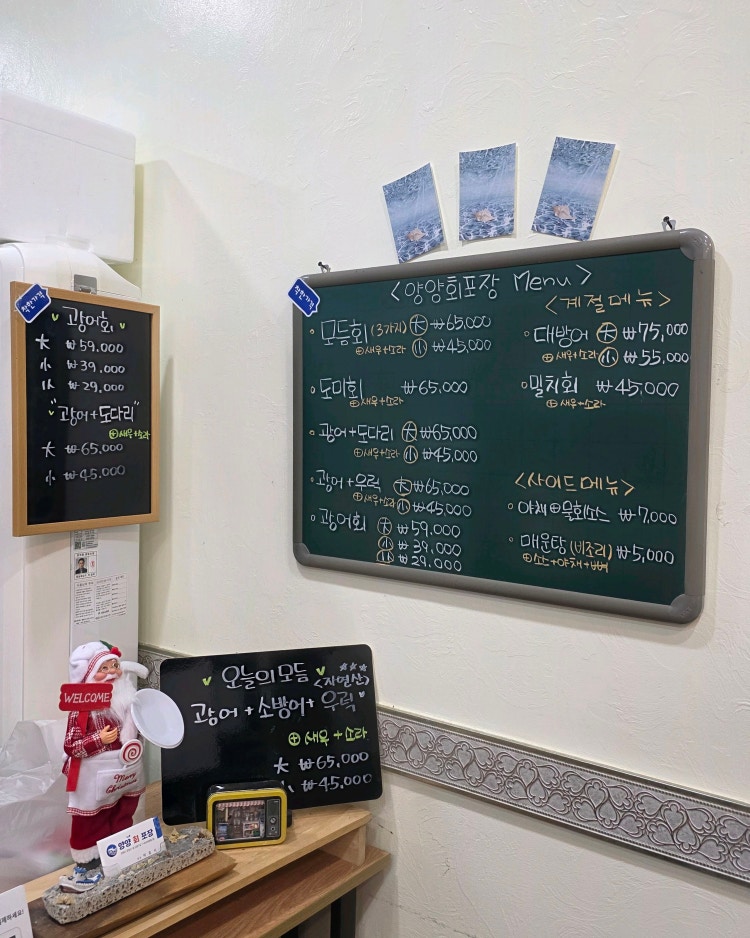 착한가격
광어회
大 ₩59,000
小 ₩39,000
㉂ ₩29,000
"광어+도다리"
⊕새우+소라
大 ₩65,000
小 ₩45,000
착한가격
<양양회포장 Menu>
모듬회 (3가지) 大 ₩65,000
⊕새우+소라 小 ₩45,000
도미회 ₩65,000
⊕새우+소라
광어+도다리 大 ₩65,000
⊕새우+소라 小 ₩45,000
광어+우럭 大 ₩65,000
⊕새우+소라 小 ₩45,000
광어회 大 ₩59,000
小 ₩39,000
₩29,000
<계절메뉴>
대방어 大 ₩75,000
⊕새우+소라 小 ₩55,000
밀치회 ₩45,000
⊕새우+소라
<사이드메뉴>
야채⊕물회소스 ₩7,000
매운탕 (비조리) ₩5,000
⊕소스+야채+뼈
오늘의 모듬
<자연산>
광어+소방어+우럭
⊕새우+소라
大 ₩65,000
小 ₩45,000
WELCOME
Merry Christmas
양양 회 포장